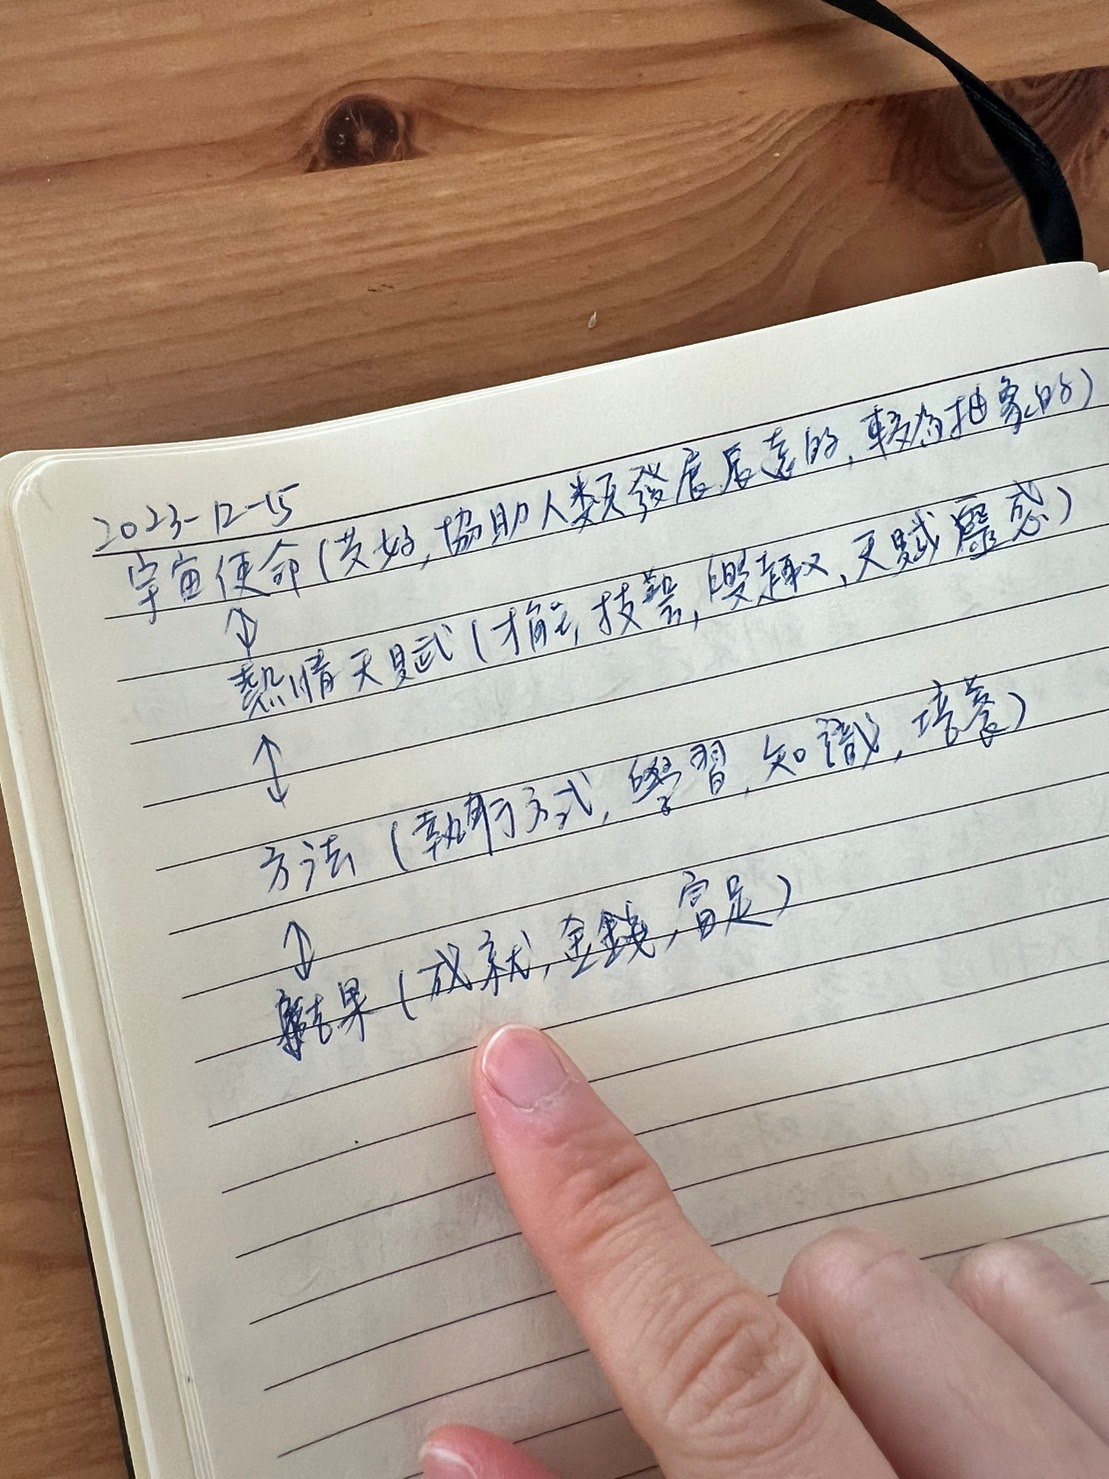 2023-12-15
宇宙使命(美好,協助人類發展長遠的,較為抽象的)
↕
熱情天賦(才能,技藝,興趣,天賦靈感)
↕
方法(執行方式,學習,知識,培養)
↕
結果(成就,金錢,富足)